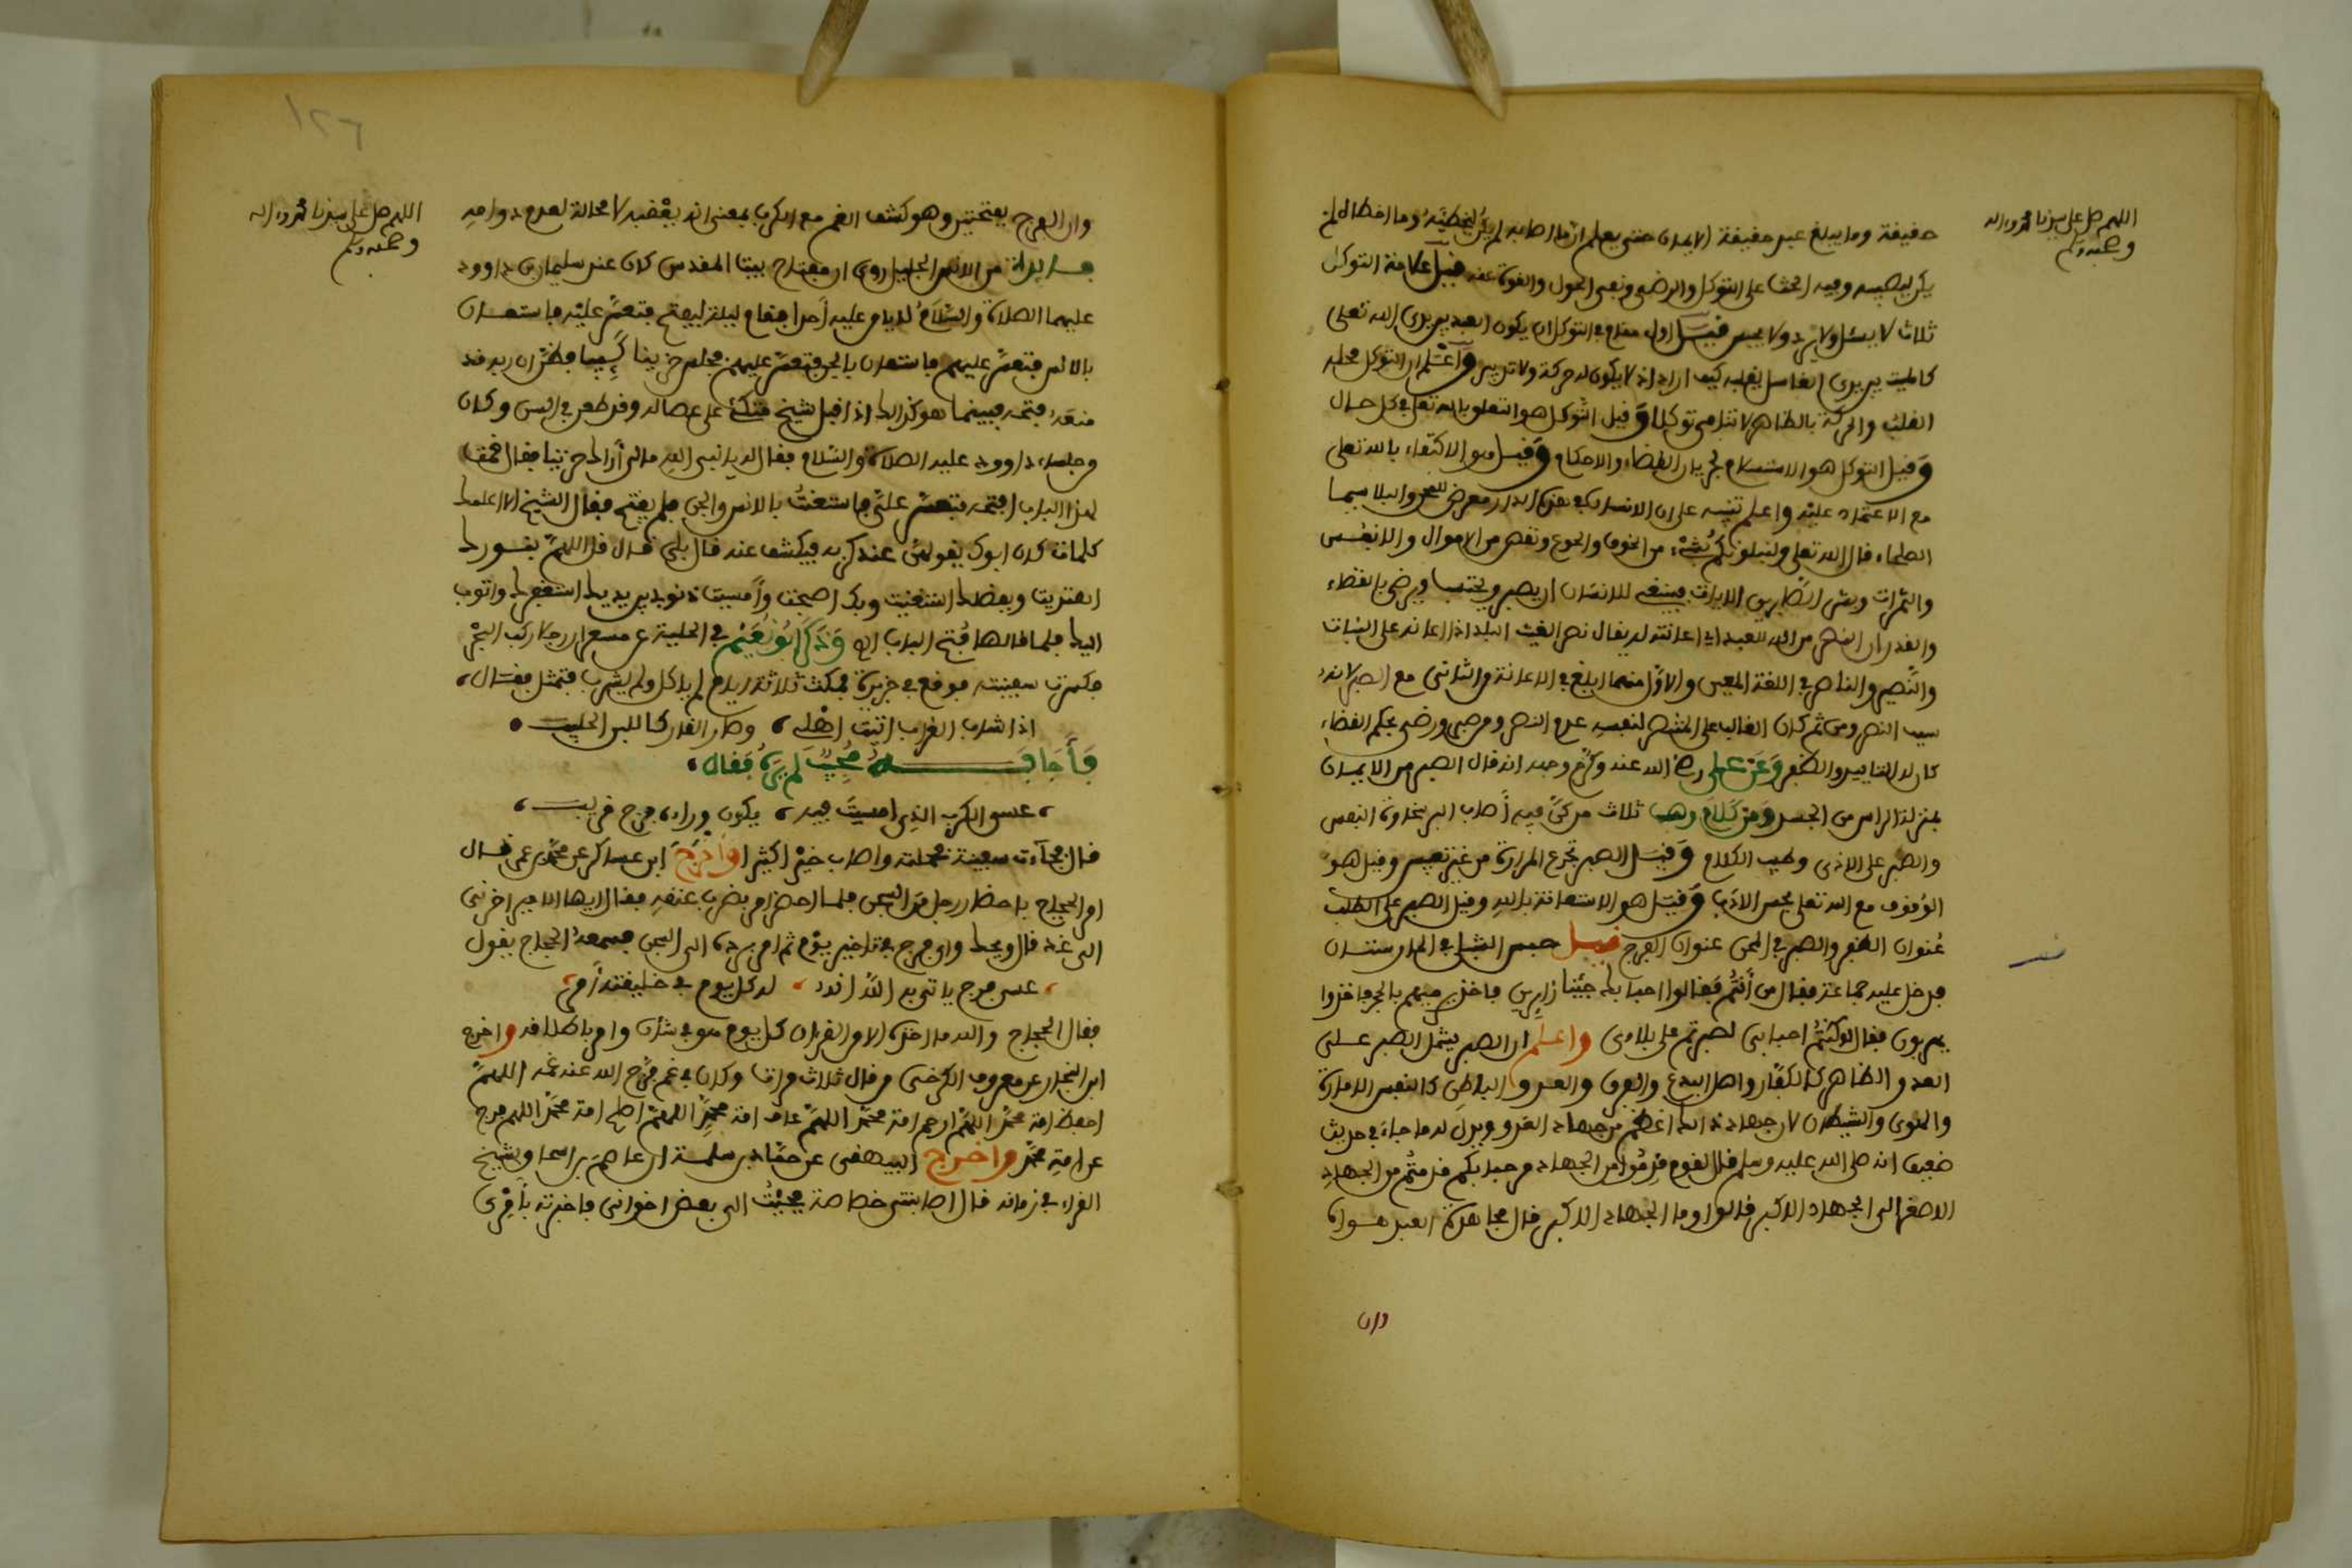 اللهم صل على سيدنا محمد وءاله
وصحبه وسلم
حقيقة وما يبلغ عبد حقيقة الايمان حتى يعلم ان ما اصابه لم يكن ليخطئه وما اخطاه لم
يكن ليصيبه وفيه الحث على التوكل والرضى ونفي الحول والقوة عنه قيل علامة التوكل
ثلاث لا يسئل ولا يرد ولا يحبس قيل اول مقام في التوكل ان يكون العبد بين يدي الله تعلى
كالميت بين يدي الغاسل يقلبه كيف اراد اذ لا يكون له حركة ولا تدبير واعلم ان التوكل محله
القلب والحركة بالظاهر لا تنافي توكلا وقيل التوكل هو التعلق بالله تعلى في كل حال
وقيل التوكل هو الاستسلام لجريان القضاء والاحكام وقيل هو الاكتفاء بالله تعلى
مع الاعتماد عليه واعلم تنبيه على ان الانسان في هذه الدار معرض للمحن والبلا سيما
الصلحاء قال الله تعلى ولنبلونكم بشيء من الخوف والجوع ونقص من الاموال والانفس
والثمرات وبشر الصابرين الايات فينبغي للانسان ان يصبر ويحتسب ويرضى بالقضاء
والقدر ان النصر من الله للعبد اي اعانته له يقال نصر الغيث البلد اذا اعانه على النبات
والنصير والناصر في اللغة المعين والاول منهما ابلغ في الاعانة والثاني مع الصبر لانه
سبب النصر ومن ثم كان الغالب على المنتصر لنفسه عدم النصر ومن صبر ورضي بحكم القضاء
كان له التاييد والظفر وعن علي رضي الله عنه وكرم وجهه انه قال الصبر من الايمان
بمنزلة الراس من الجسد ومن كلام وهب ثلاث من كن فيه اصاب البر سخاوة النفس
والصبر على الاذى وطيب الكلام وقيل الصبر تجرع المرارة من غير تعبيس وقيل هو
الوقوف مع الله تعلى بحسن الادب وقيل هو الاستعانة بالله وقيل الصبر على الطلب
عنوان الظفر والصبر في المحن عنوان الفرج قيل حبس الشبلي في المارستان
فدخل عليه جماعة فقال من انتم فقالوا احبابك جئنا زايرين فاخذ يرميهم بالحجر فاخذوا
يهربون فقال لو كنتم احبابي لصبرتم على بلاءي واعلم ان الصبر يشمل الصبر على
العدو الظاهر كالكفار واهل البدع والفرق والعدو الباطن كالنفس الامارة
والهوى والشيطان لان جهاد ذالك اعظم من جهاد العدو ويدل له ما جاء في حديث
ضعيف انه صلى الله عليه وسلم قال لقوم قدموا من الجهاد مرحبا بكم قدمتم من الجهاد
الاصغر الى الجهاد الاكبر قالوا وما الجهاد الاكبر قال مجاهدة العبد هواه
وان
١٢٦
اللهم صل على سيدنا محمد وءاله
وصحبه وسلم
وان الفرج بفتحتين وهو كشف الغم مع الكرب بمعنى انه يعقبه لا محالة لعدم دوامه
فائدة من الانس الجليل روي ان مفتاح بيت المقدس كان عند سليمان بن داوود
عليهما الصلاة والسلام لا يامن عليه احدا فقام ليلة ليفتح فتعسر عليه فاستعان
بالانس فتعسر عليهم فاستعان بالجن فتعسر عليهم فجلس حزينا كئيبا يظن ان ربه قد
منعه فتحه فبينما هو كذالك اذ اقبل شيخ متكئ على عصا له وقد طعن في السن وكان
من جلساء داوود عليه الصلاة والسلام فقال له يا نبي الله ما لي أراك حزينا فقال قمت
لهذا الباب افتحه فتعسر علي فاستعنت بالانس والجن فلم يفتح فقال الشيخ الا اعلمك
كلمات كان ابوك يقولهن عند كربه فيكشف عنه قال بلى قال قل اللهم بنورك
اهتديت وبفضلك استغنيت وبك اصبحت وأمسيت ذنوبي بين يديك استغفرك واتوب
اليك فلما قالها فتح الباب اه وذكر ابو نعيم في الحلية عن مسعر ان رجلا ركب البحر
فكسرت سفينته فوقع في جزيرة فمكث ثلاثة ايام لم ياكل ولم يشرب فتمثل فقال،
اذا شاب الغراب اتيت اهلي ، وصار القار كاللبن الحليب
فأجابه مجيب لم يره فقال،
، عسى الكرب الذي امسيت فيه ، يكون وراءه فرج قريب ،
قال فجاءت سفينة فحملته واصاب خيرا كثيرا واخرج ابن عساكر عن محمد بن عمر قال
امر الحجاج باحضار رجل من السجن فلما احضر امر بضرب عنقه فقال ايها الامير اخرني
الى غد قال ويحك واي فرج في تاخير يوم ثم امر برده الى السجن فسمعه الحجاج يقول
، عسى فرج ياتي به الله انه ، له كل يوم في خليقته أمر
فقال الحجاج والله ما اخذه الا من القرءان كل يوم هو في شان وامر باطلاقه واخرج
ابن النجار عن معروف الكرخي من قال ثلاث مرات وكان في غم فرج الله عنه غمه اللهم
احفظ امة محمد اللهم ارحم امة محمد اللهم عاف امة محمد اللهم اصلح امة محمد اللهم فرج
عن امة محمد واخرج البيهقي عن حماد بن سلمة ان عاصم بن اسحاق شيخ
القراء في زمانه قال اصابتني خصاصة فجئت الى بعض اخواني فاخبرته بأمري